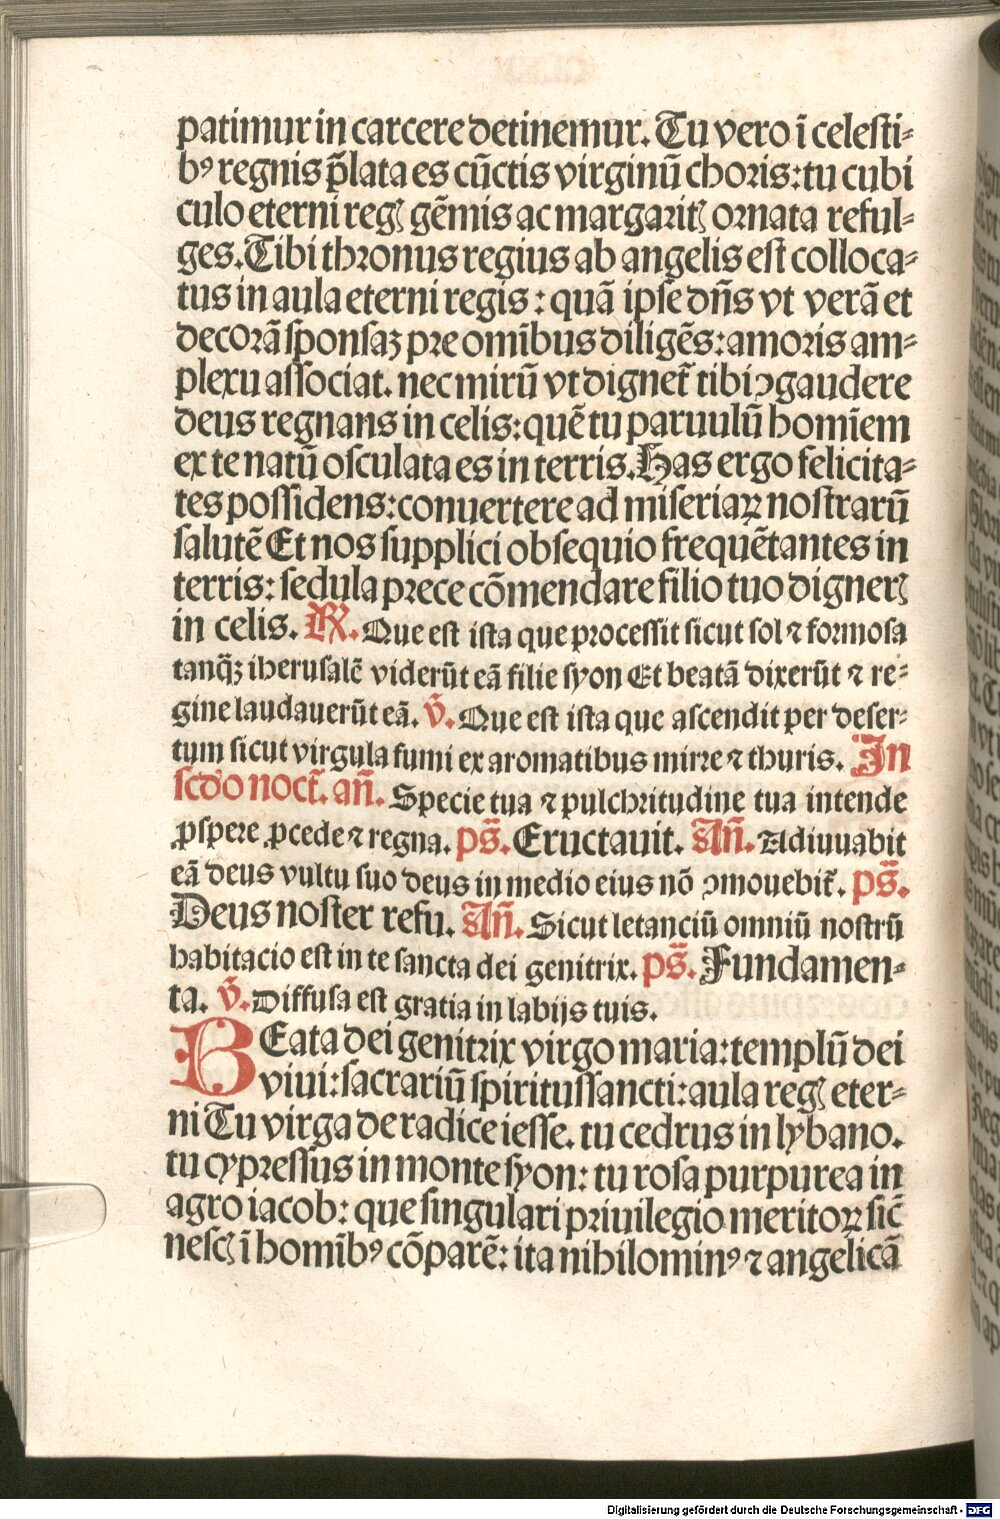 patimur in carcere detinemur. Tu vero ī celesti⸗
bꝰ regnis p̄lata es cūctis virginū choris: tu cubi
culo eterni regꝭ gēmis ac margaritꝭ ornata reful⸗
ges. Tibi thronus regius ab angelis est colloca⸗
tus in aula eterni regis: quā ipse dn̄s vt verā et
decorā sponsaꝫ pre omībus diligēs: amoris am⸗
plexu associat. nec mirū vt dignet̄ tibi ꝯgaudere
deus regnans in celis: quē tu paruulū homīem
ex te natū osculata es in terris. Has ergo felicita⸗
tes possidens: conuertere ad miseriaꝝ nostrarū
salutē Et nos supplici obsequio frequētantes in
terris: sedula prece cōmendare filio tuo digneꝭ
in celis. ℟. Que est ista que processit sicut sol ⁊ formosa
tanq̄ꝫ iherusalē viderūt eā filie syon Et beatā dixerūt ⁊ re⸗
gine laudauerūt eā. v̄. Que est ista que ascendit per deser⸗
tum sicut virgula fumi ex aromatibus mirre ⁊ thuris. In
scd̄o noct̄. an̄. Specie tua ⁊ pulchritudine tua intende
ꝓspere ꝓcede ⁊ regna. ps̄. Eructauit. An̄. Adiuuabit
eā deus vultu suo deus in medio eius nō ꝯmouebit̄. ps̄.
Deus noster refu. An̄. Sicut letanciū omniū nostrū
habitacio est in te sancta dei genitrix. ps̄. Fundamen⸗
ta. v̄. Diffusa est gratia in labijs tuis.
BEata dei genitrix virgo maria: templū dei
viui: sacrariū spiritussancti: aula regꝭ eter⸗
ni Tu virga de radice iesse. tu cedrus in lybano.
tu cypressus in monte syon: tu rosa purpurea in
agro iacob: que singulari priuilegio meritoꝝ sic̄
nescꝭ ī homībꝰ cōparē: ita nihilominꝰ ⁊ angelicā
Digitalisierung gefördert durch die Deutsche Forschungsgemeinschaft - DFG